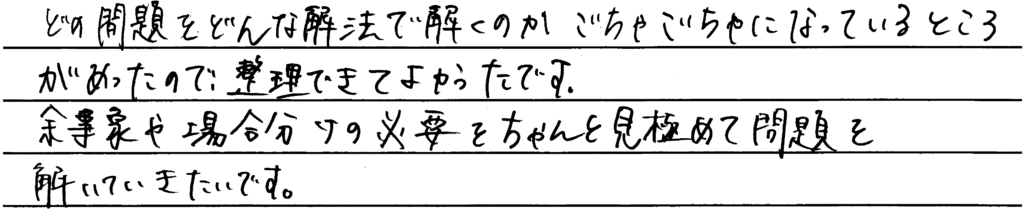 どの問題をどんな解法で解くのか ごちゃごちゃになっているところ
があったので、整理できてよかったです。
余事象や場合分けの必要をちゃんと見極めて問題を
解いていきたいです。